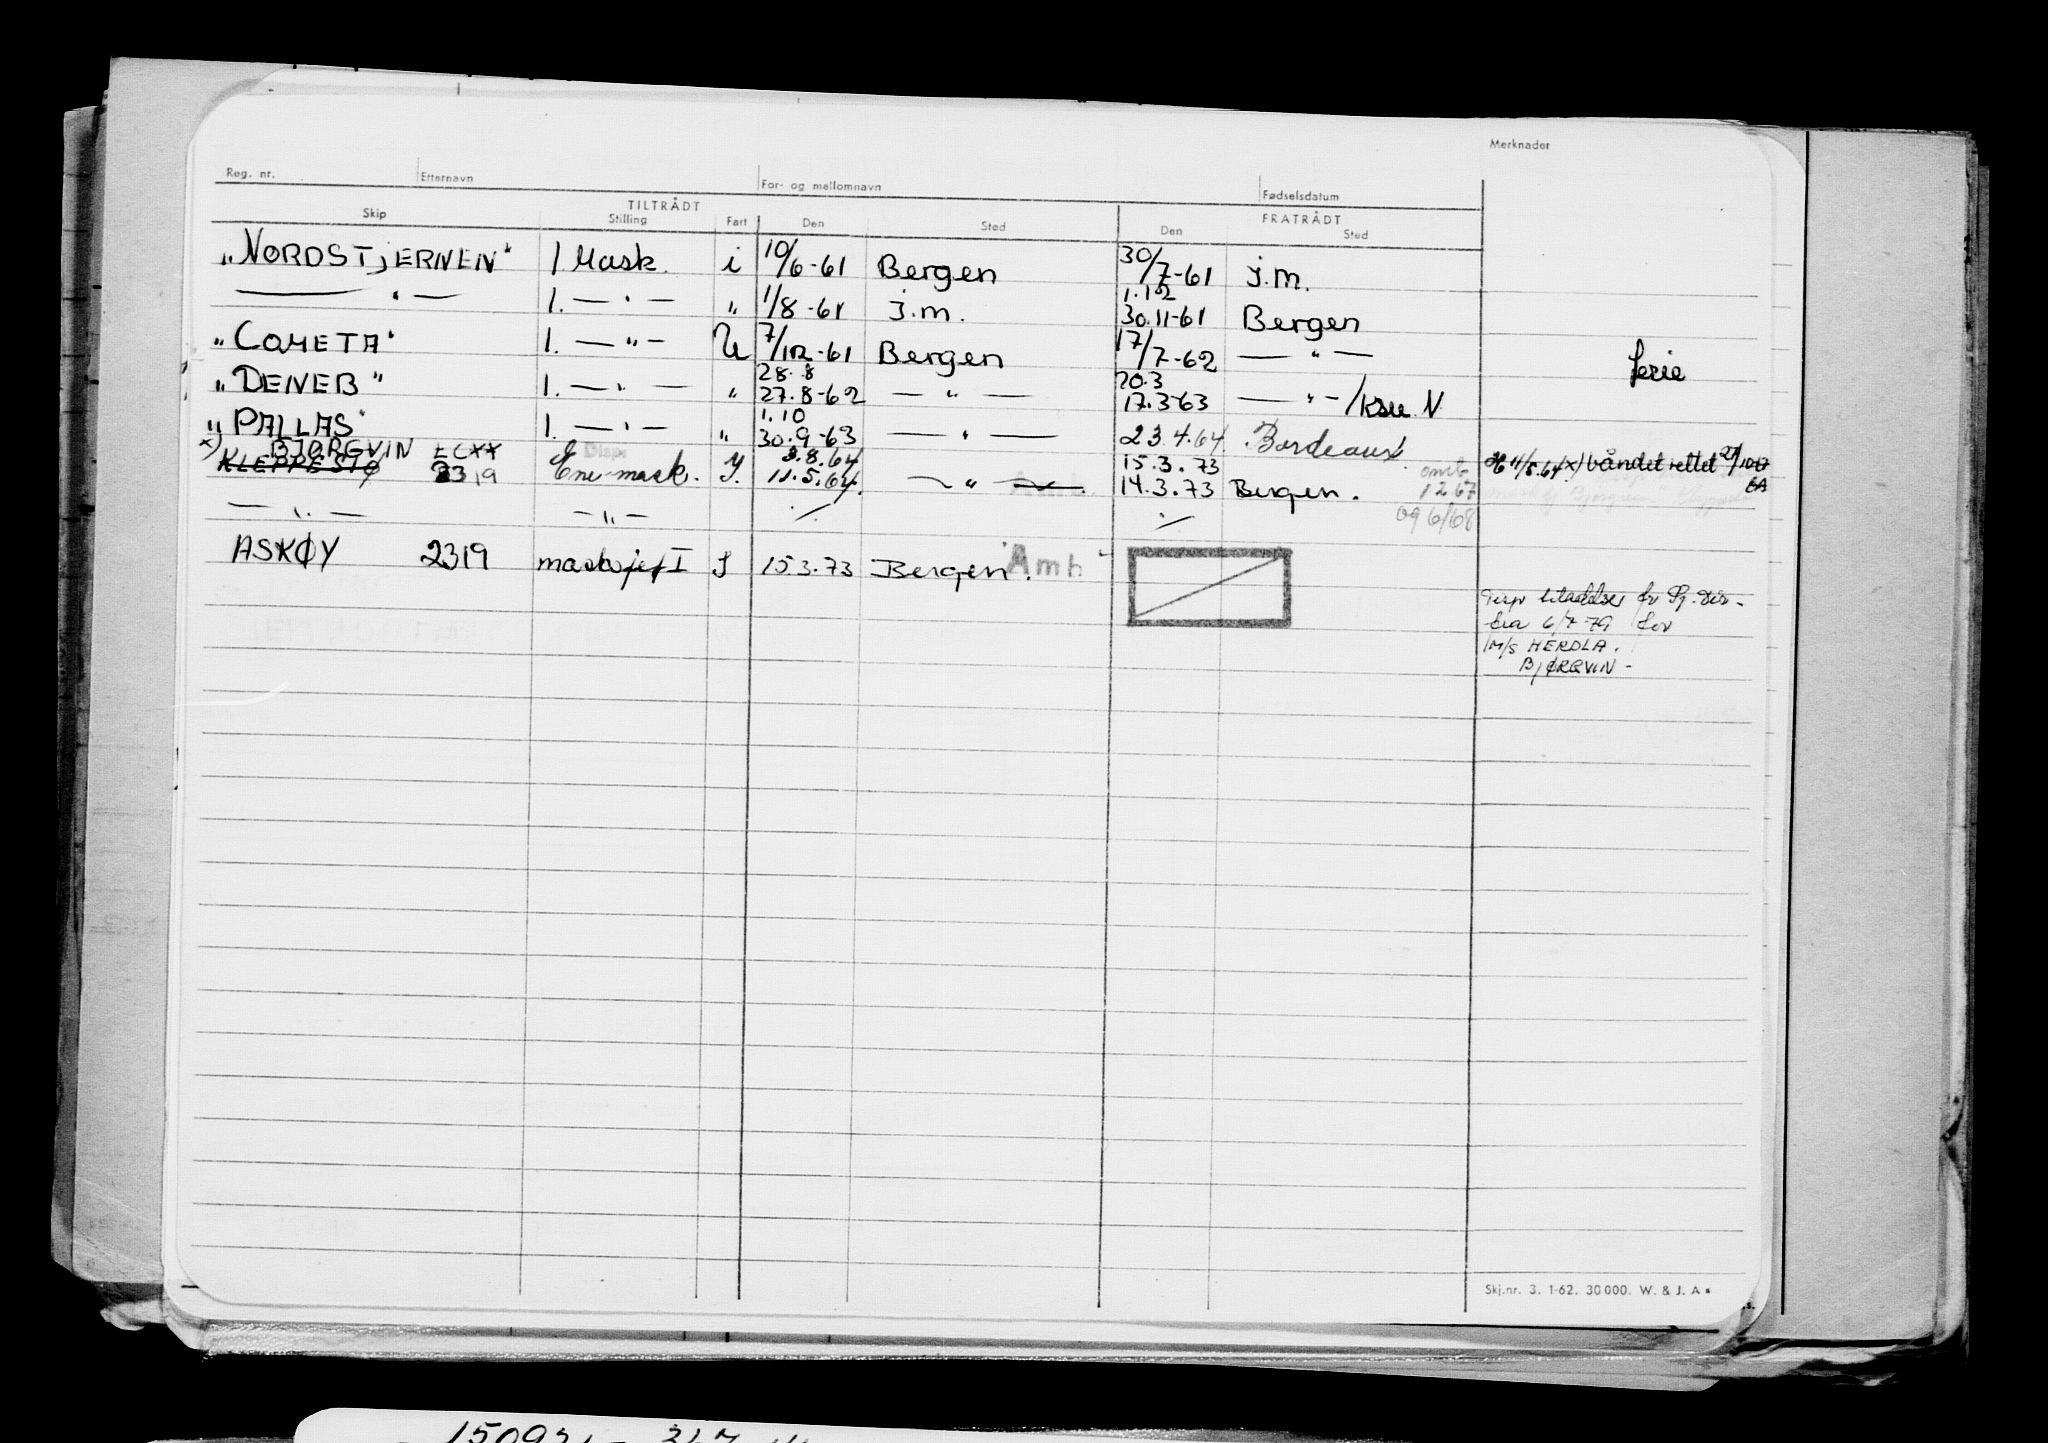 Merknader
Reg. nr. Etternavn For- og mellomnavn Fødselsdatum
TILTRÅDT FRATRÅDT
Skip Stilling Fart Den Sted Den Sted
"NORDSTJERNEN" 1 Mask. i 10/6-61 Bergen 30/7-61 J.m.
— " — 1. — " — " 1/8-61 J.m. 1.12 30.11-61 Bergen
"COMETA" 1. — " — U 7/12-61 Bergen 17/7-62 — " — ferie
"DENEB" 1. — " — " 28.8 27.8-62 — " — 20.3 17.3-63 — " — /Ksu N
"PALLAS" 1. — " — " 1.10 30.9-63 — " — 23.4.64 Bordeaux
x) BJØRGVIN LCXX Disp. 3.8.64 15.3.73
KLEPPESTØ 2319 Ene-mask. J. 11.5.64 — " — 14.3.73 Bergen. omb 1267 11/5.64 x) båndet rettet
— " — — " — ·/. ·/. 096/68
ASKØY 2319 masksjef I J 15.3.73 Bergen. Amh
Disp tilladelse fr Sj. dir-
fra 6/7 79 for
M/S HERDLA.
BJØRGVIN -
Skj.nr. 3. 1-62. 30 000. W. & J. A